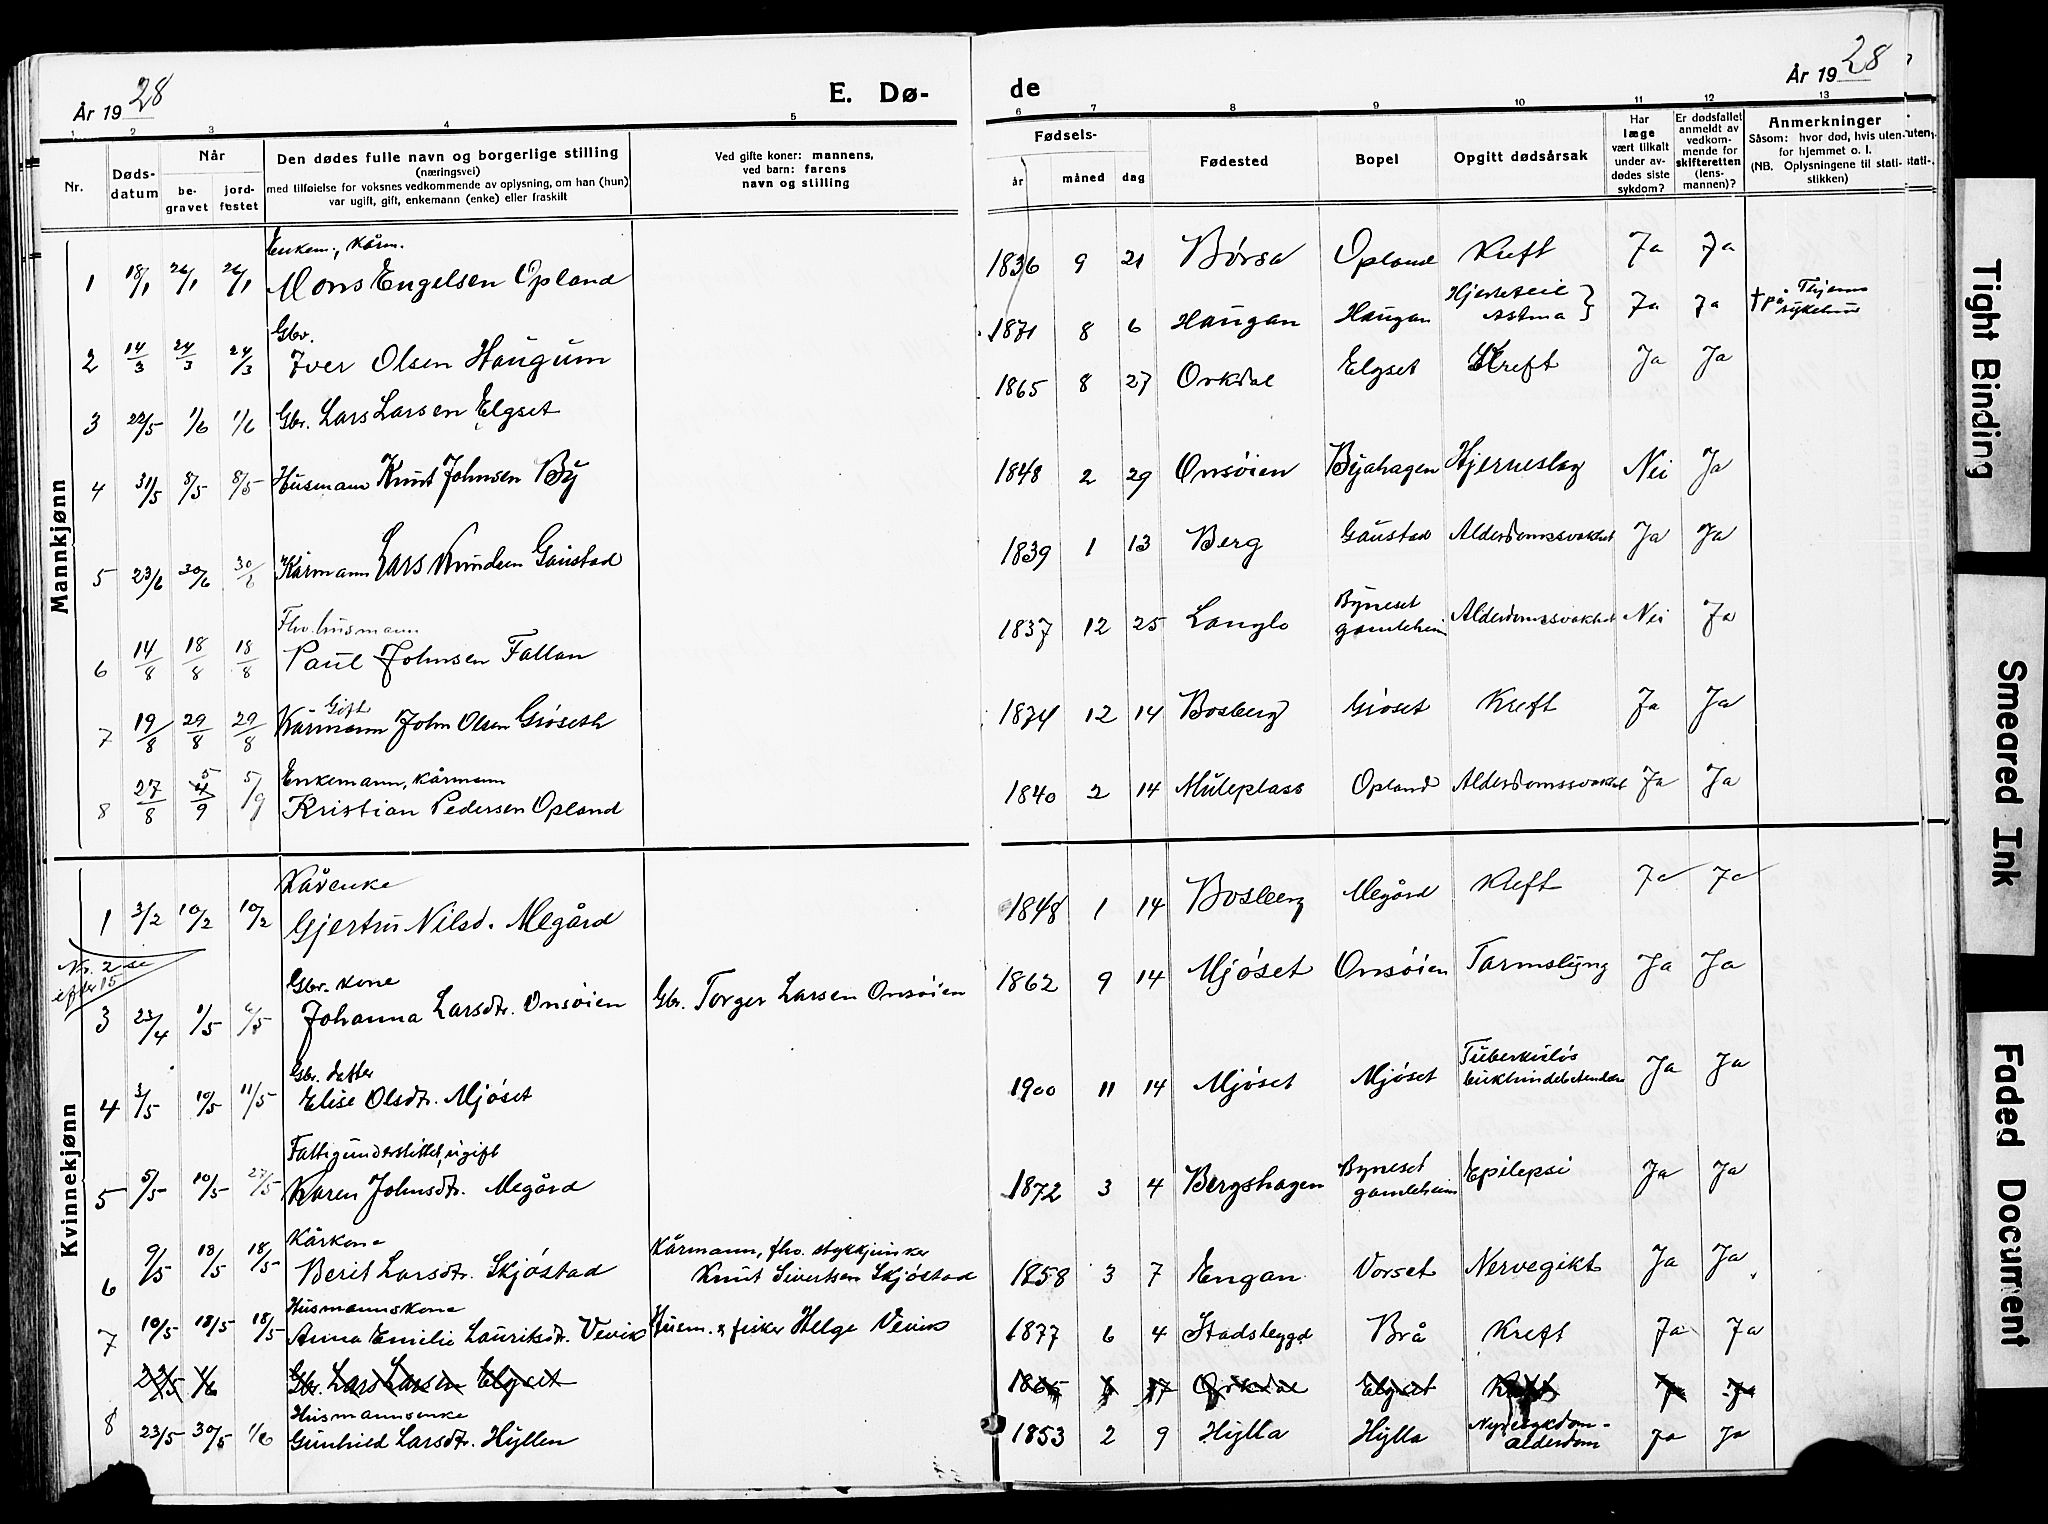 År 1928
E. Dø-
de
År 1928
1 2 3 4 5 6 7 8 9 10 11 12 13
Nr.
Døds-
datum
Når
be-
gravet
jord-
festet
Den dødes fulle navn og borgerlige stilling
(næringsvei)
med tilføielse for voksnes vedkommende av oplysning, om han (hun)
var ugift, gift, enkemann (enke) eller fraskilt
Ved gifte koner: mannens,
ved barn: farens
navn og stilling
Fødsels-
år måned dag
Fødested
Bopel
Opgitt dødsårsak
Har
læge
vært tilkalt
under av-
dødes siste
sykdom?
Er dødsfallet
anmeldt av
vedkom-
mende for
skifteretten
(lens-
mannen)?
Anmerkninger
Såsom: hvor død, hvis uten-
for hjemmet o. l.
(NB. Oplysningene til stati-
stikken)
Mannkjønn
Enkem., kårm.
1 18/1 26/1 26/1 Mons Engelsen Opland 1836 9 21 Børsa Opland Kreft Ja Ja
Gbr.
2 14/3 24/3 24/3 Iver Olsen Haugum 1871 8 6 Haugan Haugan Hjertefeil
Astma } Ja Ja † på
sykehus
3 22/5 1/6 1/6 Gbr. Lars Larsen Elgset 1865 8 27 Orkdal Elgset Kreft Ja Ja
4 31/5 8/5 8/5 Husmann Knut Johnsen By 1848 2 29 Onsøien Byahagen Hjerneslag Nei Ja
5 23/6 30/6 30/6 Kårmann Lars Knudsen Gaustad 1839 1 13 Berg Gaustad Alderdomssvakhet Ja Ja
Fhv. husmann
6 14/8 18/8 18/8 Paul Johnsen Fallan 1837 12 25 Langlo Byneset
gamleheim Alderdomssvakhet Nei Ja
Gift
7 19/8 29/8 29/8 Kårmann John Olsen Grøseth 1874 12 14 Bosberg Grøset Kreft Ja Ja
Enkemann, kårmann
8 27/8 5/9 5/9 Kristian Pedersen Opland 1840 2 14 Muleplass Opland Alderdomssvakhet Ja Ja
Kvinnekjønn
Kårenke
1 3/2 10/2 10/2 Gjertru Nilsd. Megård 1848 1 14 Bosberg Megård Kreft Ja Ja
Nr. 2 se
efter 15
Gbr. kone
3 23/4 1/5 6/5 Johanna Larsdtr. Onsøien Gbr. Torger Larsen Onsøien 1862 9 14 Mjøset Onsøien Tarmslyng Ja Ja
Gbr. datter
4 3/5 10/5 11/5 Elise Olsdtr. Mjøset 1900 11 14 Mjøset Mjøset Tuberkuløs
Ja Ja
Fattigunderstittet, ugift
5 5/5 10/5 27/5 Karen Johnsdtr. Megård 1872 3 4 Bergshagen Byneset
gamleheim Epilepsi Ja Ja
Kårkone
6 9/5 18/5 18/5 Berit Larsdtr. Skjøstad Kårmann, fhv. stykkjunker
Knut Sivertsen Skjøstad 1858 3 7 Engan Vorset Nervegikt Ja Ja
Husmannskone
7 10/5 18/5 18/5 Anna Emilie Lauritsdtr. Vevik Husm. & fisker Helge Veviks 1877 6 4 Stadsbygd Brå Kreft Ja Ja
22/5 1/6 Gbr. Lars Larsen Elgset 1865 8 27 Orkdal Elgset Kreft Ja Ja
Husmannsenke
8 23/5 30/5 1/6 Gunhild Larsdtr. Hyllen 1853 2 9 Hylla Hylla Nyresykdom-
alderdom Ja Ja
Tight Binding
Smeared Ink
Faded Document